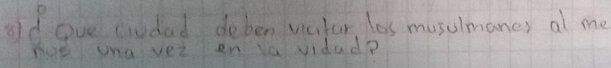 a) ¿Que ciudad deben vicitar los musulmanes al me
nos una vez en la vidad?